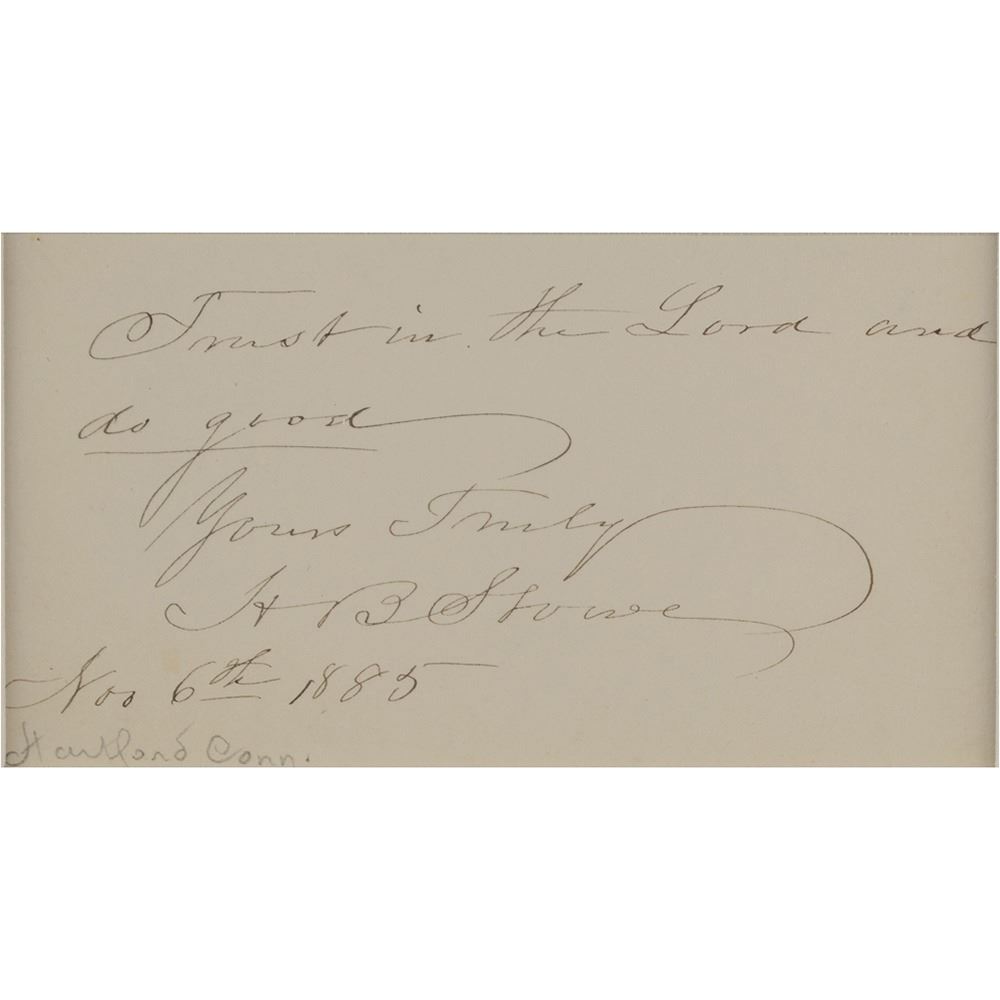 Trust in the Lord and
do good
Yours Truly
H B Stowe
Nov 6th 1885
Hartford Conn.